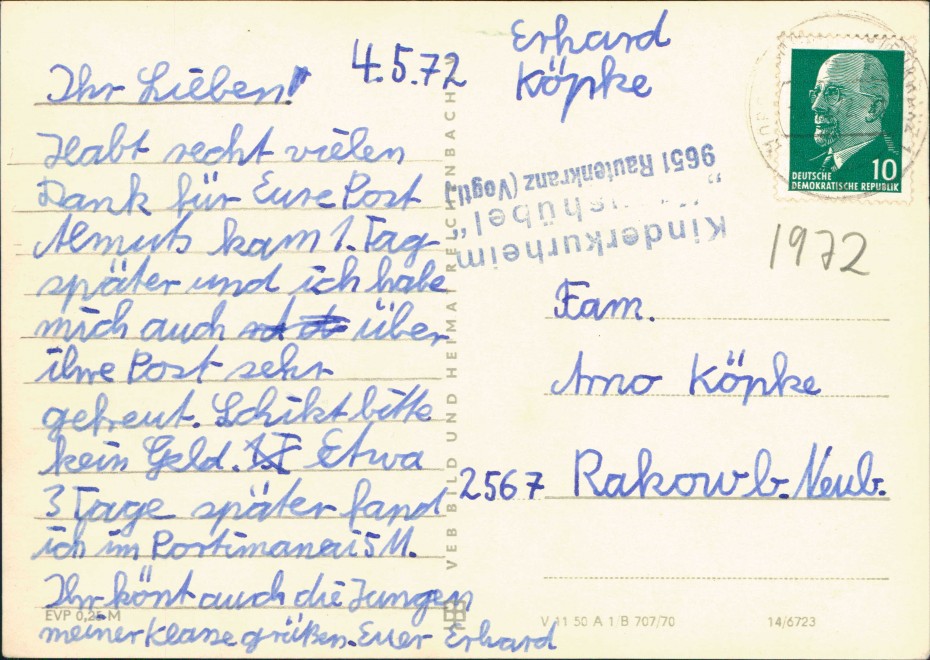 Ihr Lieben!
4.5.72
Habt recht vielen
Dank für Eure Post
Almuts kam 1. Tag
später und ich habe
mich auch über
ihre Post sehr
gefreut. Schikt bitte
kein Geld. Etwa
3 Tage später fand
ich im Portimanai 5 M.
Ihr könt auch die Jungen
meiner Klasse grüßen. Euer Erhard
EVP 0,25 M
VEB BILD UND HEIMAT REICHENBACH
Erhard
Köpke
Kinderkurheim
9651 Rautenkranz (Vogtl.)
10
DEUTSCHE
DEMOKRATISCHE REPUBLIK
1972
Fam.
Arno Köpke
2567 Rakow b. Neub.
V 11 50 A 1/B 707/70
14/6723